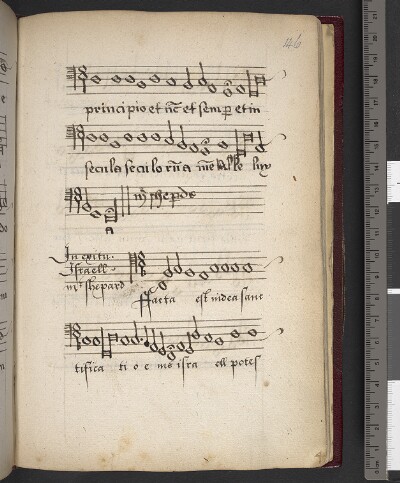 146
principio et nc̄ et semp̱ et in
secula seculo rū a mē Alle luy
a
mr shepde
In exitu.
Israell.
mr shepard
Facta est iudea sanc
tifica ti o e ius isra ell potes